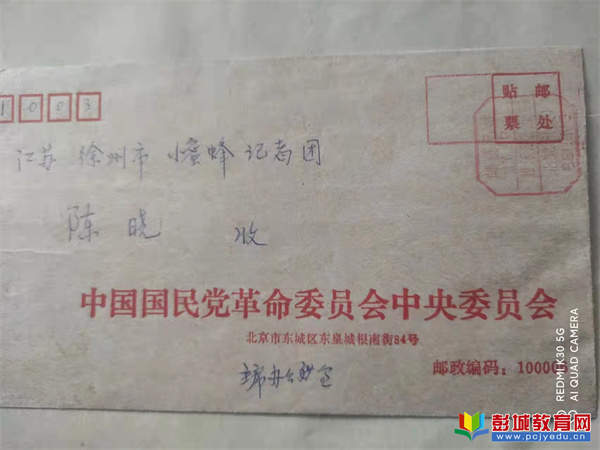 1003
贴 邮
票 处
江苏 徐州市 小蜜蜂 记者团
陈晓 收
中国国民党革命委员会中央委员会
北京市东城区东皇城根南街84号
邮政编码：10000
主席办公室
REDMI K30 5G
AI QUAD CAMERA
彭城教育网
www.pcjyedu.cn